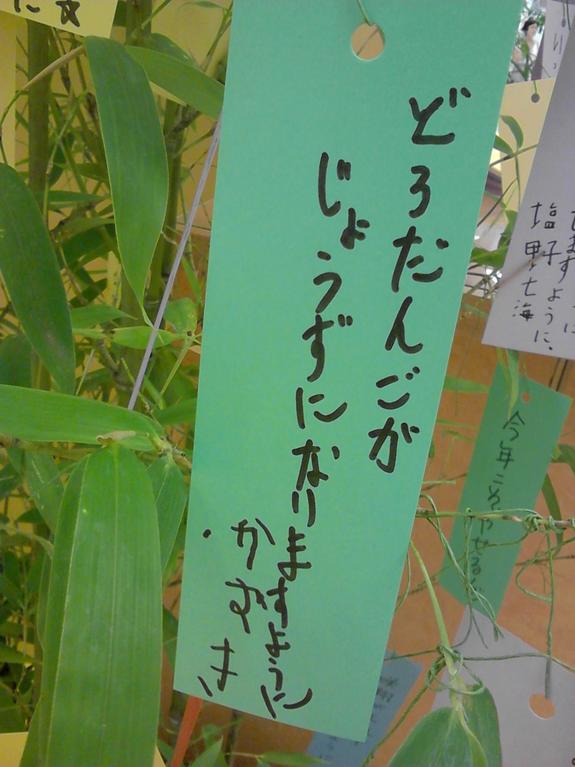 どろだんごが
じょうずになり
ますように
今年こそやせる!
ますように
ように、
塩野七海